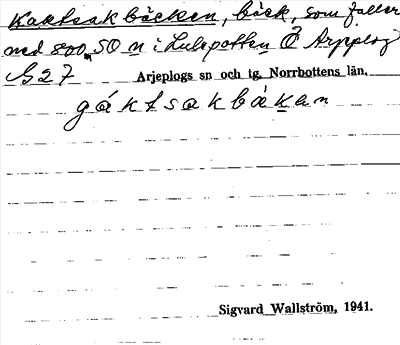 Kaktsakbäcken, bäck, som faller
ned 800 SO n i Lulepotten Ö Arjeplog
G27
Arjeplogs sn och tg, Norrbottens län.
gáktsakbäkan
Sigvard Wallström, 1941.